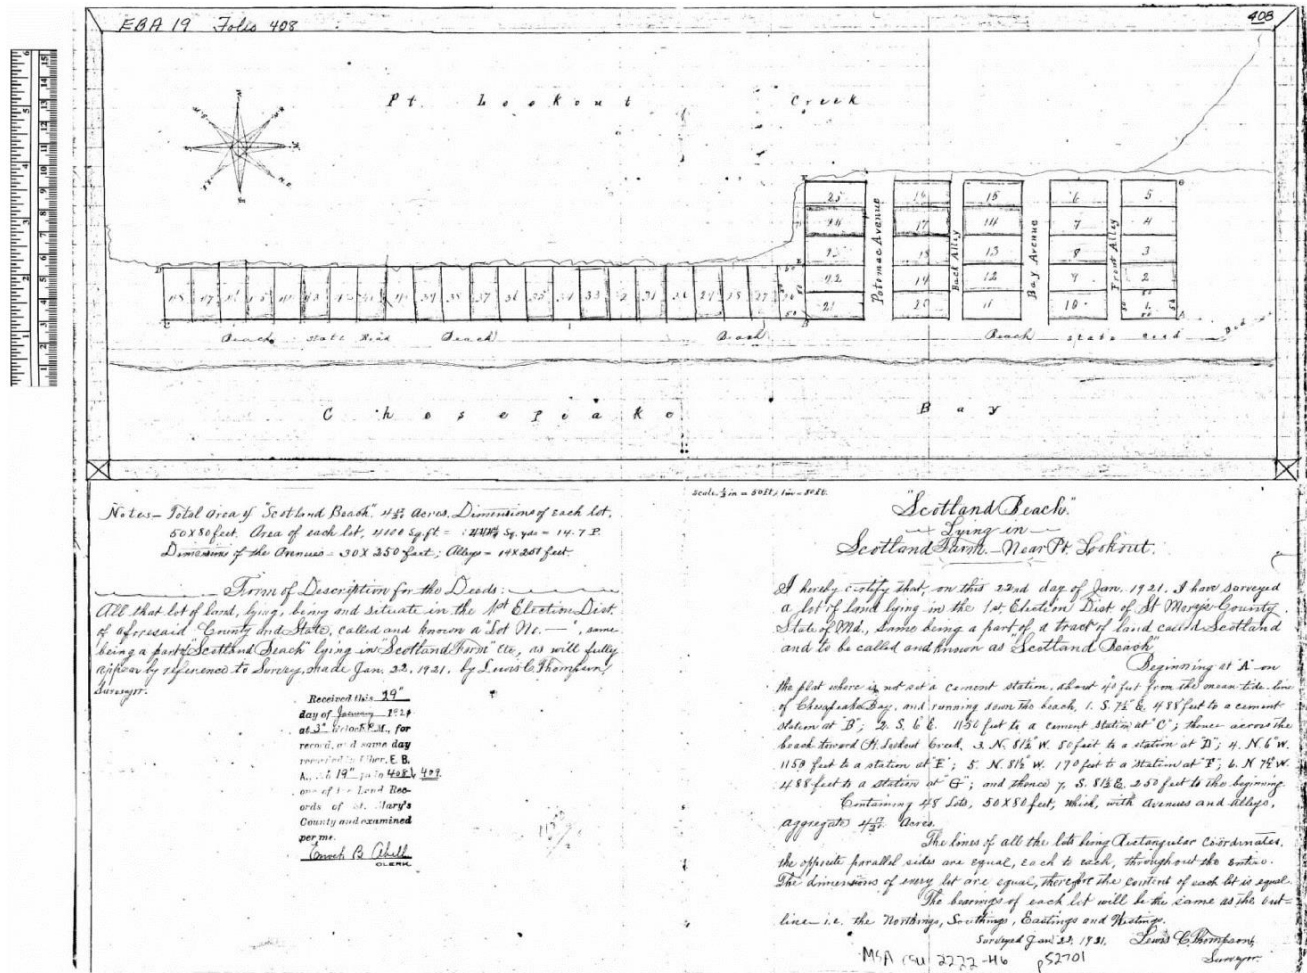 EBA 19 Folio 408
408
Pt Lookout Creek
25 16 15 6 5
24 17 14 7 4
23 18 13 8 3
22 19 12 9 2
21 20 11 10 1
Potomac Avenue
Back Alley
Bay Avenue
Front Alley
48 47 46 45 44 43 42 41 40 39 38 37 36 35 34 33 32 31 30 29 28 27 26
Beach State Road Beach Beach Beach State Road
Chesepeake Bay
Scale ½ in = 50 ft
Notes — Total area of "Scotland Beach" 4 Acres. Dimensions of each lot,
50 X 80 feet. Area of each lot, 4000 Sq. ft = Sq. yds = 14.7 P.
Dimensions of the Avenues = 30 X 250 feet; Alleys = 14 X 250 feet.
Form of Description for the Deeds:
All that lot of land, lying, being and situate in the 1st Election Dist.
of aforesaid County and State, called and known a "Lot No. —", same
being a part of "Scotland Beach lying in "Scotland Farm" &c, as will fully
appear by reference to Survey, made Jan. 22, 1921, by Lewis C. Thompson,
Surveyor.
Received this 29"
day of January 1921
at 3" o'clock P.M., for
record, and same day
recorded in Liber, E. B.
A., No 19" folio 408 & 409
one of the Land Rec-
ords of St. Mary's
County and examined
per me.
Enoch B Abell
CLERK
"Scotland Beach".
Lying in
Scotland Farm — Near Pt. Lookout.
I hereby certify that, on this 22nd day of Jan. 1921, I have surveyed
a lot of land lying in the 1st. Election Dist of St Marys County
State of Md., same being a part of a tract of land called Scotland
and to be called and known as "Scotland Beach"
Beginning at "A" on
the plat where is not set a cement station, about 40 feet from the mean tide line
of Chesapeake Bay, and running down the beach, 1. S. 7½° E. 488 feet to a cement
station at "B"; 2. S. 6 E. 1150 feet to a cement station at "C"; thence across the
beach toward Pt. Lookout Creek, 3. N. 81½° W. 80 feet to a station at "D"; 4. N 6° W.
1150 feet to a station at "E"; 5. N. 81½° W. 170 feet to a station at "F"; 6. N 7½° W.
488 feet to a station at "G"; and thence 7. S. 81½ E. 250 feet to the beginning.
Containing 48 Lots, 50 X 80 feet, which, with avenues and alleys,
aggregate 4 Acres.
The lines of all the lots being Rectangular Coordinates,
the opposite parallel sides are equal, each to each, throughout the entire.
The dimensions of every lot are equal, therefore the content of each lot is equal.
The bearings of each lot will be the same as the out-
line — i.e. the Northings, Southings, Eastings and Westings.
Surveyed Jan 22, 1921. Lewis C. Thompson,
Surveyor.
MSA CSU 2222-46 p52701